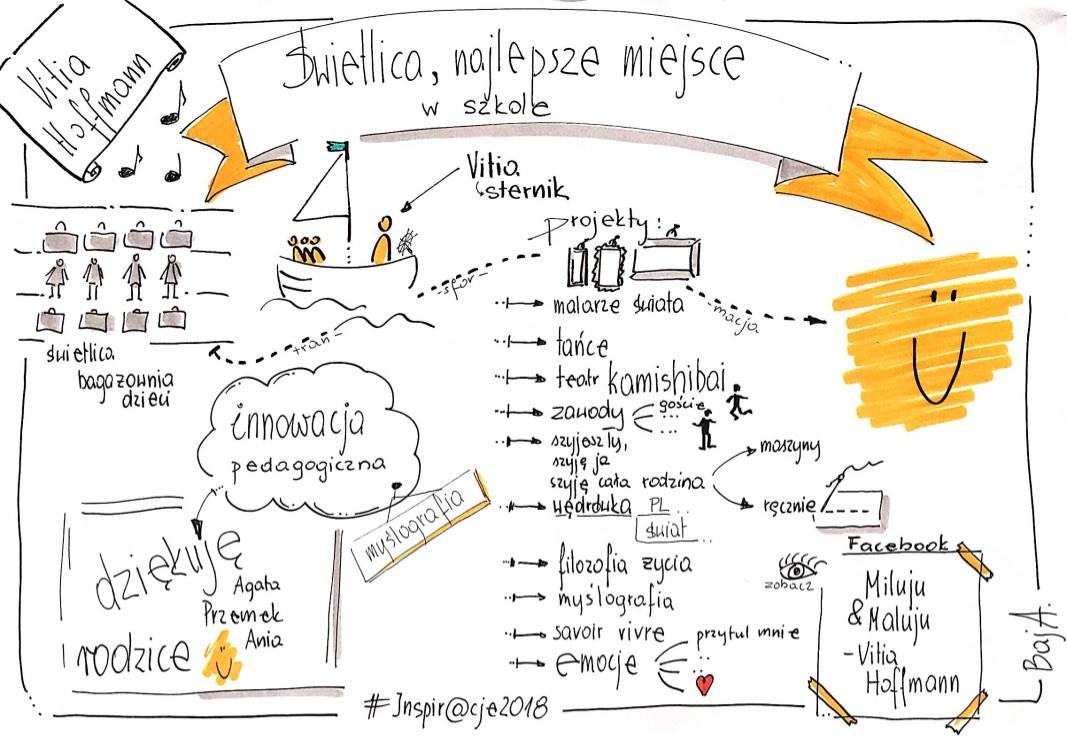 Vitia
Hoffmann
Świetlica, najlepsze miejsce
w szkole
Vitia
sternik
świetlica
bagażownia
dzieci
-tran-
-sfor-
-macja
projekty:
malarze świata
tańce
teatr kamishibai
zawody
goście
szyjesz ty,
szyję ja
szyję cała rodzina
maszyny
ręcznie
wędrówka PL
świat
filozofia życia
myślografia
savoir vivre
przytul mnie
emocje
innowacja
pedagogiczna
myślografia
dziękuję
Agata
Przemek
Ania
rodzice
zobacz
Facebook
Miluju
& Maluju
-Vitia
Hoffmann
#Inspir@cje2018
BajA.